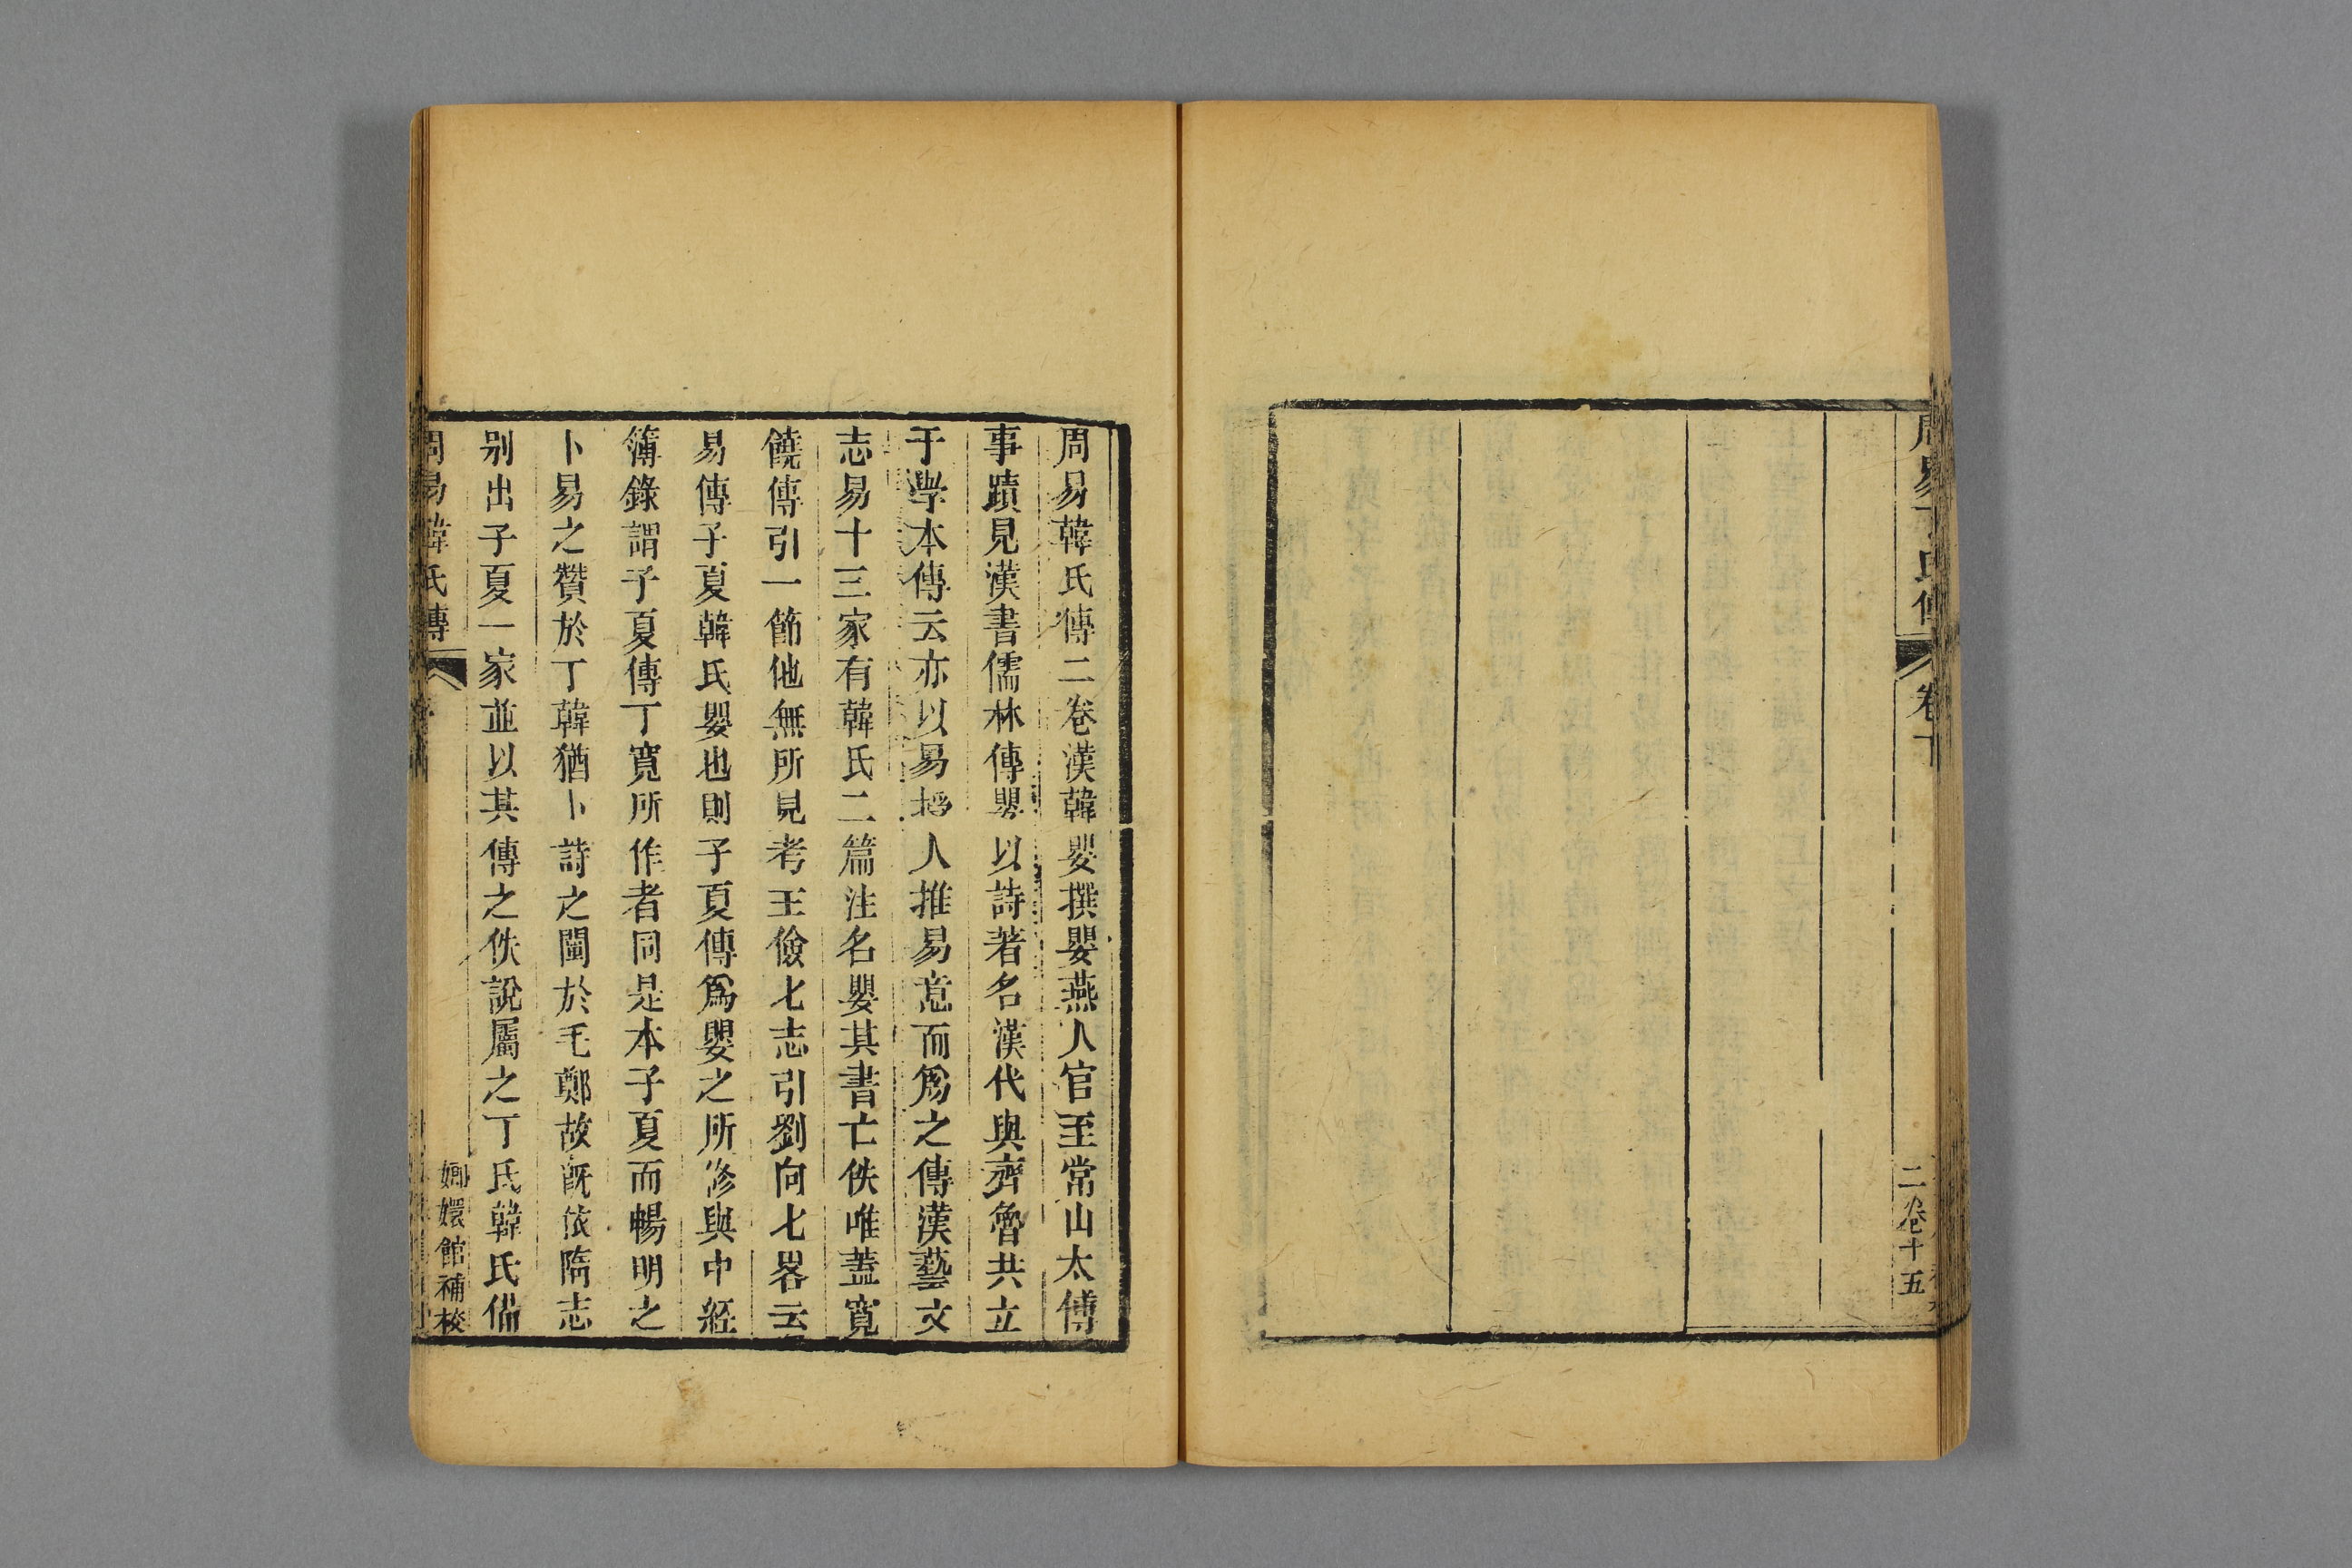 周易丁氏傳
卷下
二卷十五
周易韓氏傳二卷漢韓嬰撰嬰燕人官至常山太傅
事蹟見漢書儒林傳嬰以詩著名漢代與齊魯共立
于學本傳云亦以易授人推易意而爲之傳漢藝文
志易十三家有韓氏二篇注名嬰其書亡佚唯蓋寬
饒傳引一節他無所見考王儉七志引劉向七畧云
易傳子夏韓氏嬰也則子夏傳爲嬰之所修與中經
簿錄謂子夏傳丁寬所作者同是本子夏而暢明之
卜易之贊於丁韓猶卜詩之闡於毛鄭故旣依隋志
别出子夏一家並以其傳之佚說屬之丁氏韓氏備
周易韓氏傳
嫏嬛館補校